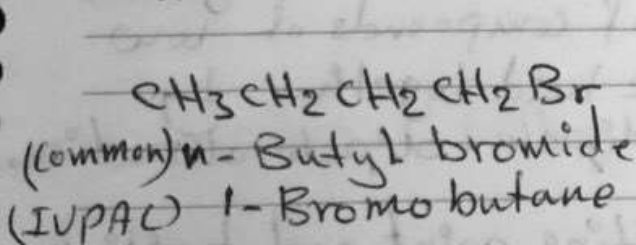 CH3CH2CH2CH2Br
(Common) n-Butyl bromide
(IUPAC) 1-Bromobutane